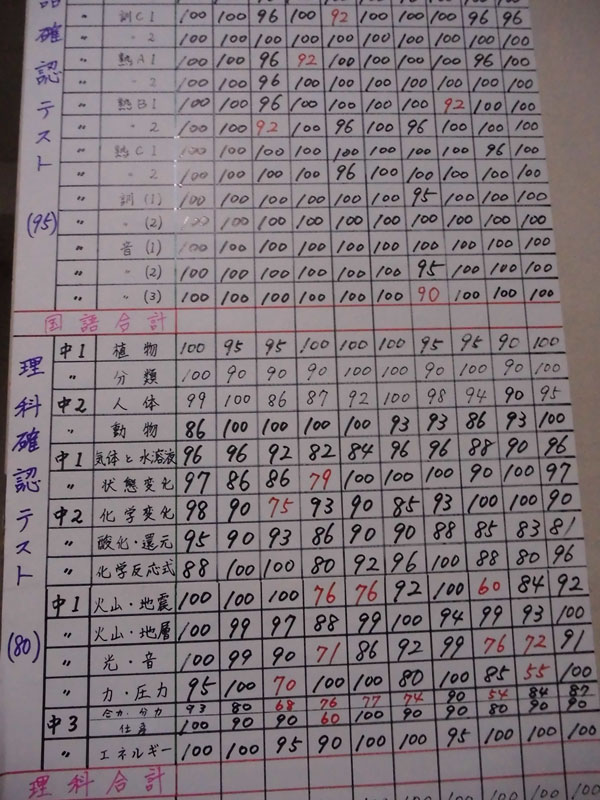 訓C1 100 100 96 100 92 100 100 100 96 96
〃 2 100 100 100 100 100 100 100 100 100 100
熟A1 100 100 96 92 100 100 100 100 96 100
〃 2 100 100 96 100 100 100 100 100 100 100
熟B1 100 100 96 100 100 100 100 92 100 100
〃 2 100 100 92 100 96 100 96 100 100 100
熟C1 100 100 100 100 100 100 100 100 96 100
〃 2 100 100 100 100 96 100 100 100 100 100
〃 訓(1) 100 100 100 100 100 100 95 100 100 100
〃 〃(2) 100 100 100 100 100 100 100 100 100 100
〃 音(1) 100 100 100 100 100 100 100 100 100 100
〃 〃(2) 100 100 100 100 100 100 95 100 100 100
〃 〃(3) 100 100 100 100 100 100 90 100 100 100
確認テスト
(95)
国語合計
理科確認テスト
(80)
中1 植物 100 95 95 100 100 100 95 95 90 100
〃 分類 100 90 90 90 100 100 90 100 90 100
中2 人体 99 100 86 87 92 100 98 94 90 95
〃 動物 86 100 100 100 100 93 93 86 93 100
中1 気体と水溶液 96 96 92 82 84 96 96 88 90 96
〃 状態変化 97 86 86 79 100 100 100 90 100 97
中2 化学変化 98 90 75 93 90 85 93 100 100 90
〃 酸化・還元 95 90 93 86 90 90 88 85 83 81
〃 化学反応式 88 100 100 80 92 96 100 88 80 96
中1 火山・地震 100 100 100 76 76 92 100 60 84 92
〃 火山・地層 100 99 97 88 99 100 94 99 93 100
〃 光・音 100 99 90 71 86 92 99 76 72 91
〃 力・圧力 95 100 70 100 100 80 100 85 55 100
合力・分力 93 80 68 76 77 74 90 54 84 87
中3 仕事 100 90 90 60 100 90 90 80 90 90
〃 エネルギー 100 100 95 90 100 100 95 100 100 100
理科合計